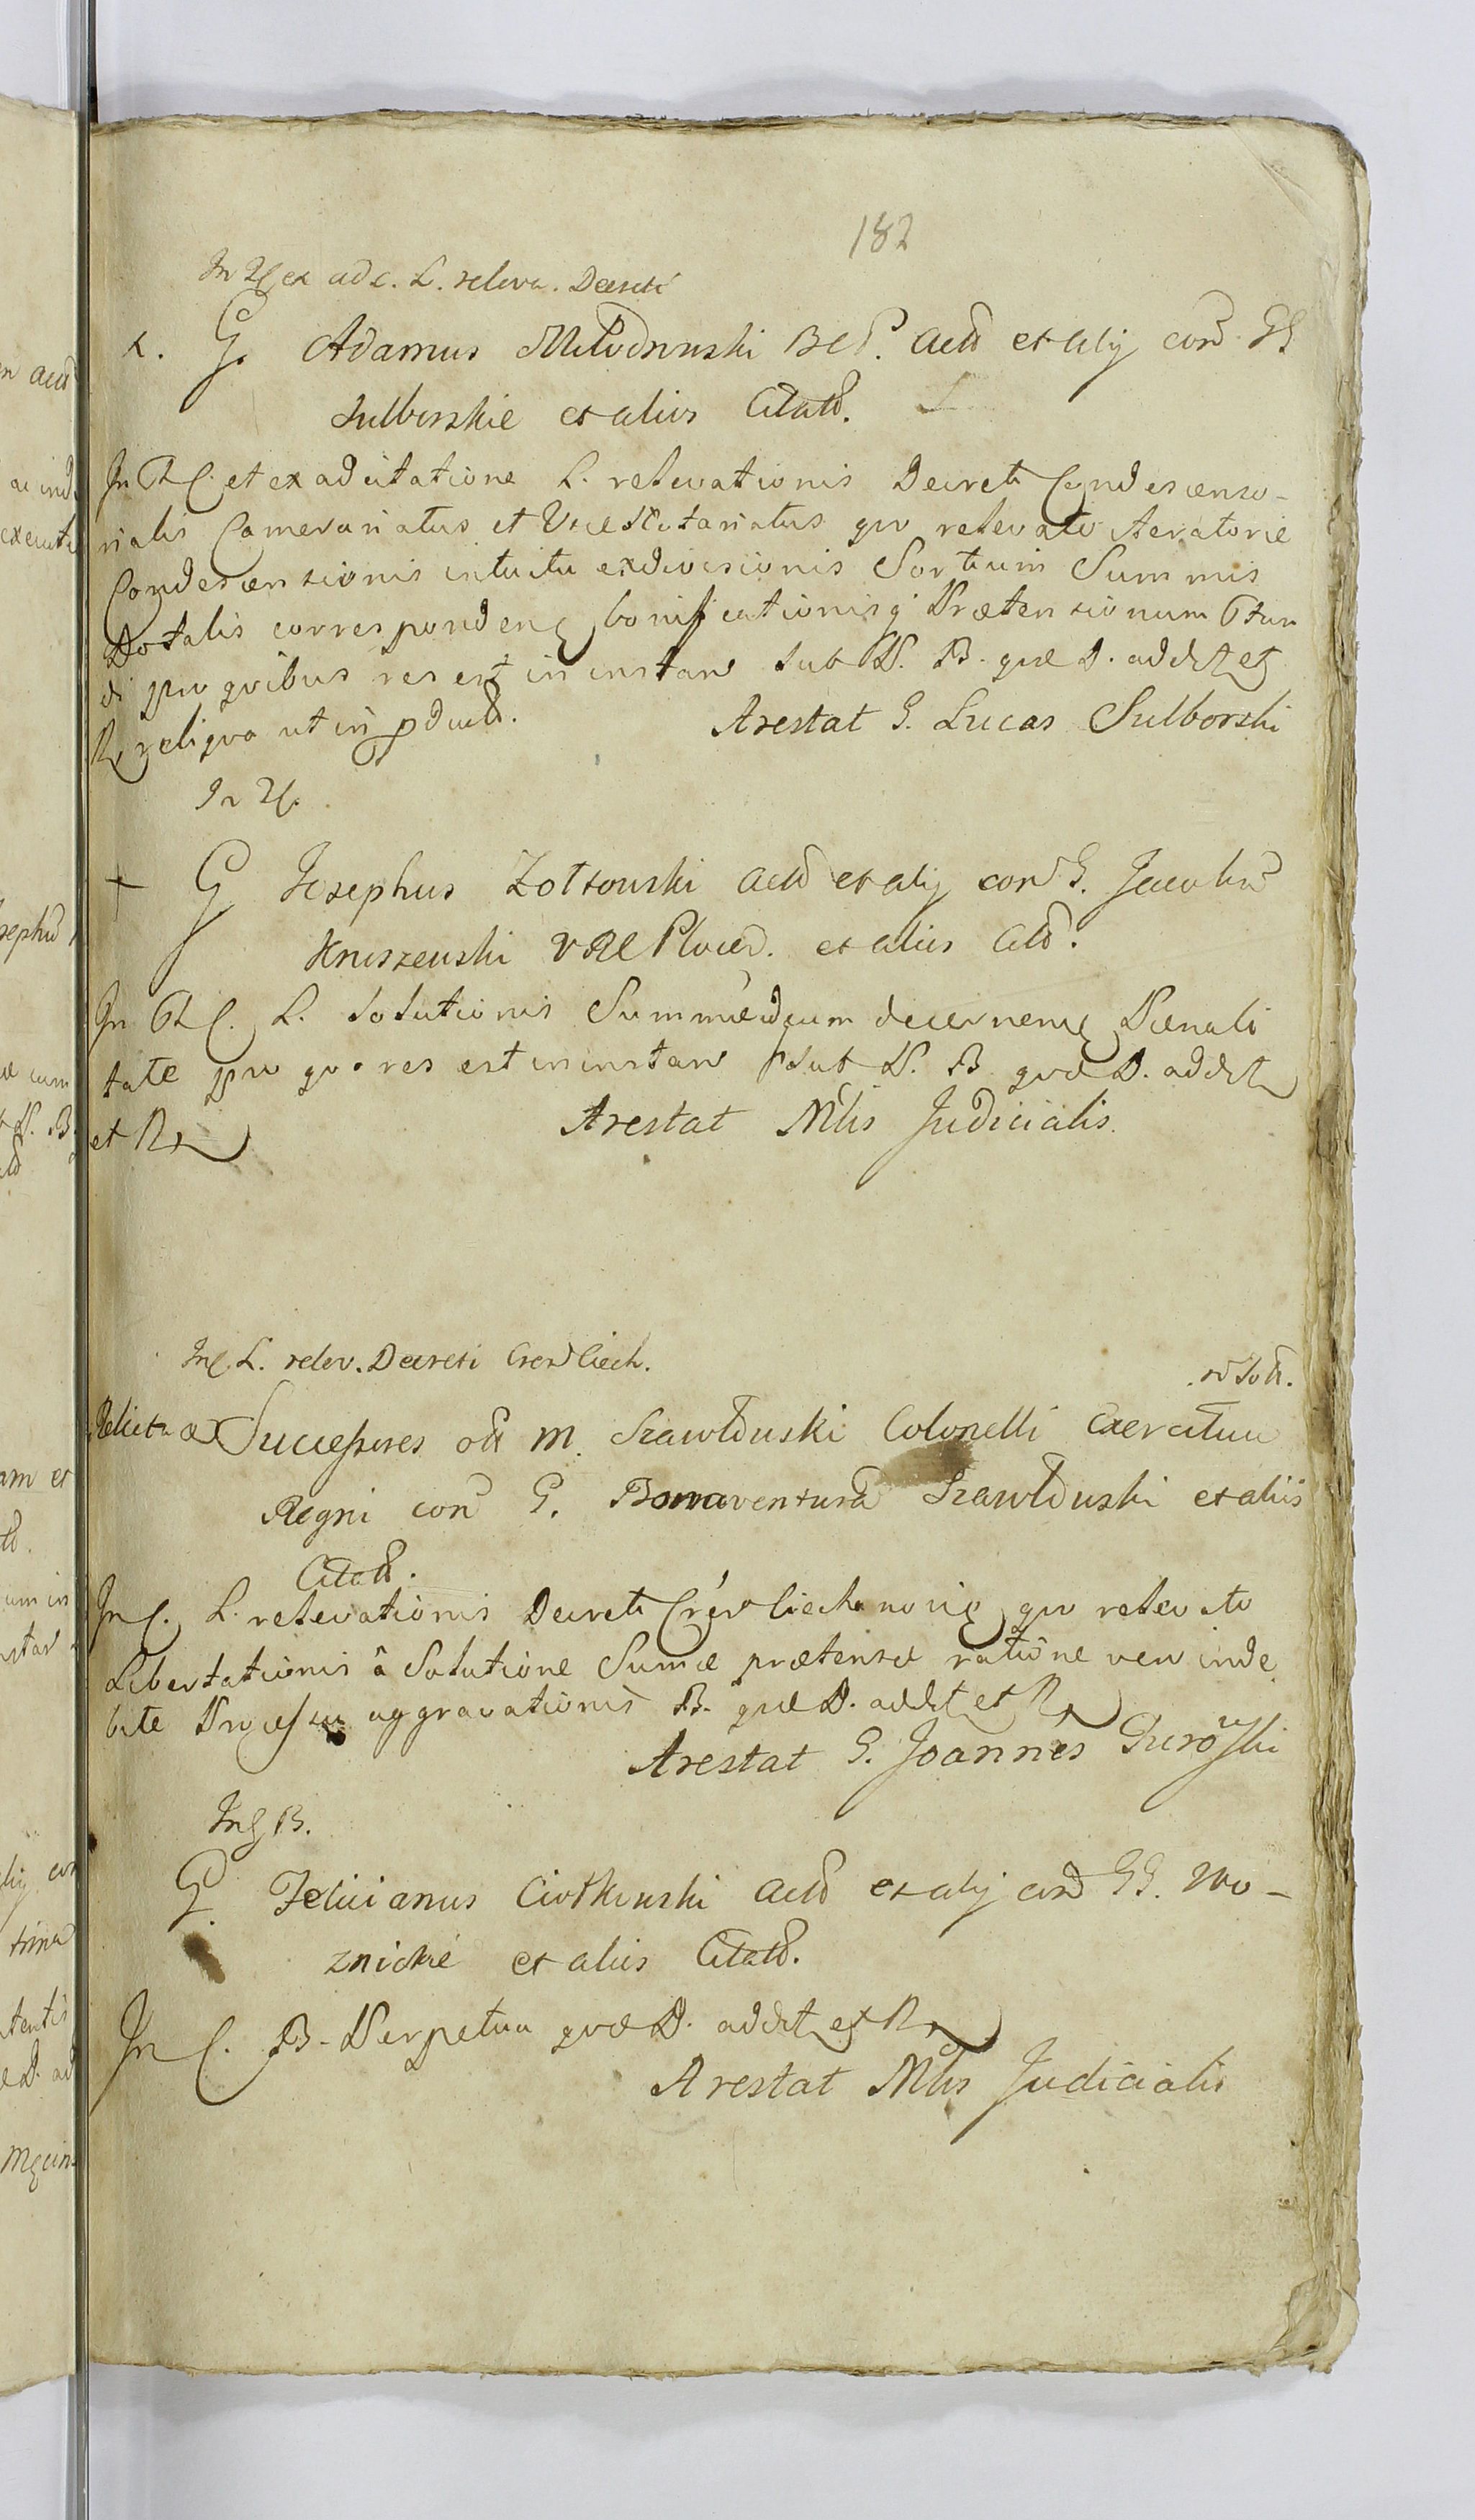 182
In Rſ ex adc. L. releva. Decreti
x. G. Adamus Młodzinuski BCP. Actō et alij con̄ GG
Sulborskie et alios Citatō.
In R C. et ex adcitatione L. relevationis Decreti Condescenso-
rialis Camerariatus et Vice Notariatus quo relevato iteratorie
Condescensionis intuitu exdivisionis Sortium Summis
Dotalis corresponden bonificationisq Prætensionum Fun
di pro quibus res est in instan Sub P. B. quæ D. addet et
R reliqua ut in pduct.
Arestat G. Lucas Sulborski
In Rſ.
+ G Josephus Zołtowski Actō et alij con̄ G. Jacobū
Kniszewski VRC Płoceñ. et alios Citō.
In R C. L. Solutionis Summæ cum decernen Pœnali
tate pro quo res est in instan Sub P. B. quæ D. addet
et R
Arestat Mlis Judicialis.
In C L. relev. Decreti Cren Ciech.
Relicta et Successores olī M. Szawłowski Colonelli Exercituu
Regni con̄ G. Bonaventurā Szawłowski et aliis
Citatō.
In C. L. relevationis Decreti Crēn Ciechanovien quo relevato
Libertationis â Solutione Sumæ prætensæ ratione vero inde
bite Processu aggravationis B. quæ D. addet et R
Arestat G. Joannes Gurowski
In C B.
G. Felicianus Ciołkowski Actō et alij con̄ GG. Wo-
znickie et alios Citatō.
In C. B. Perpetua quæ D. addet et R
Arestat Mlis Judicialis